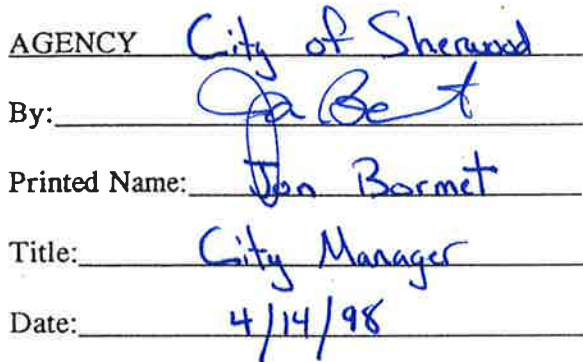 AGENCY City of Sherwood
By:
Printed Name: Jon Bormet
Title: City Manager
Date: 4/14/98